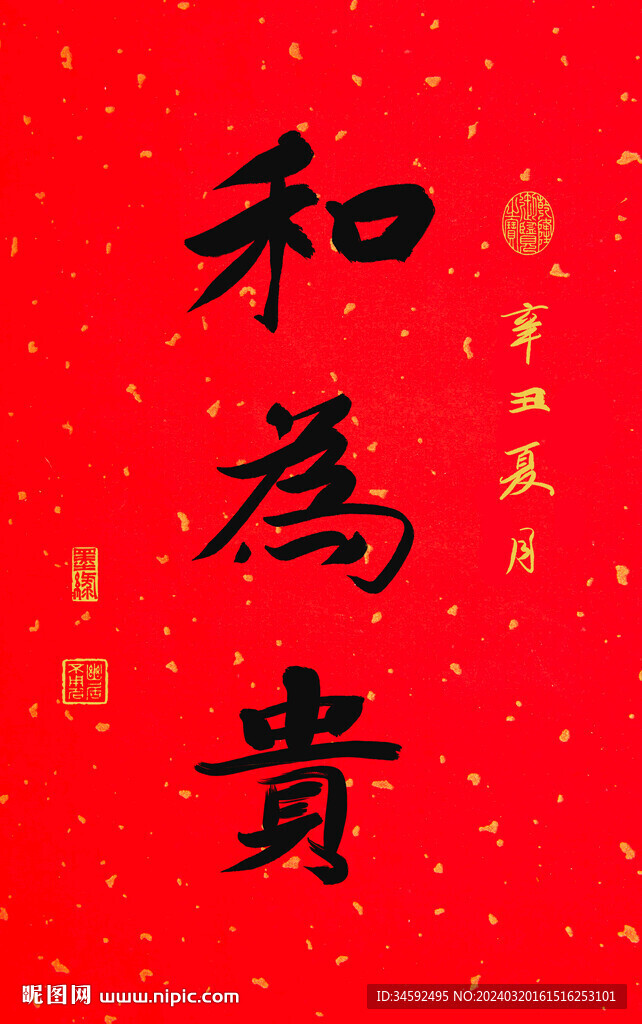 和為貴
辛丑夏月
昵图网 www.nipic.com
ID:34592495 NO:20240320161516253101